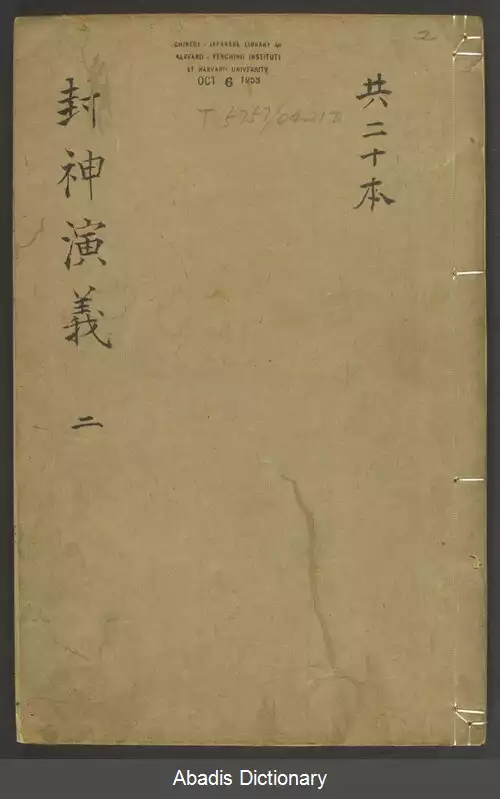 共二十本
封神演義 二
CHINESE - JAPANESE LIBRARY OF
HARVARD - YENCHING INSTITUTE
AT HARVARD UNIVERSITY
OCT 6 1953
2
Abadis Dictionary